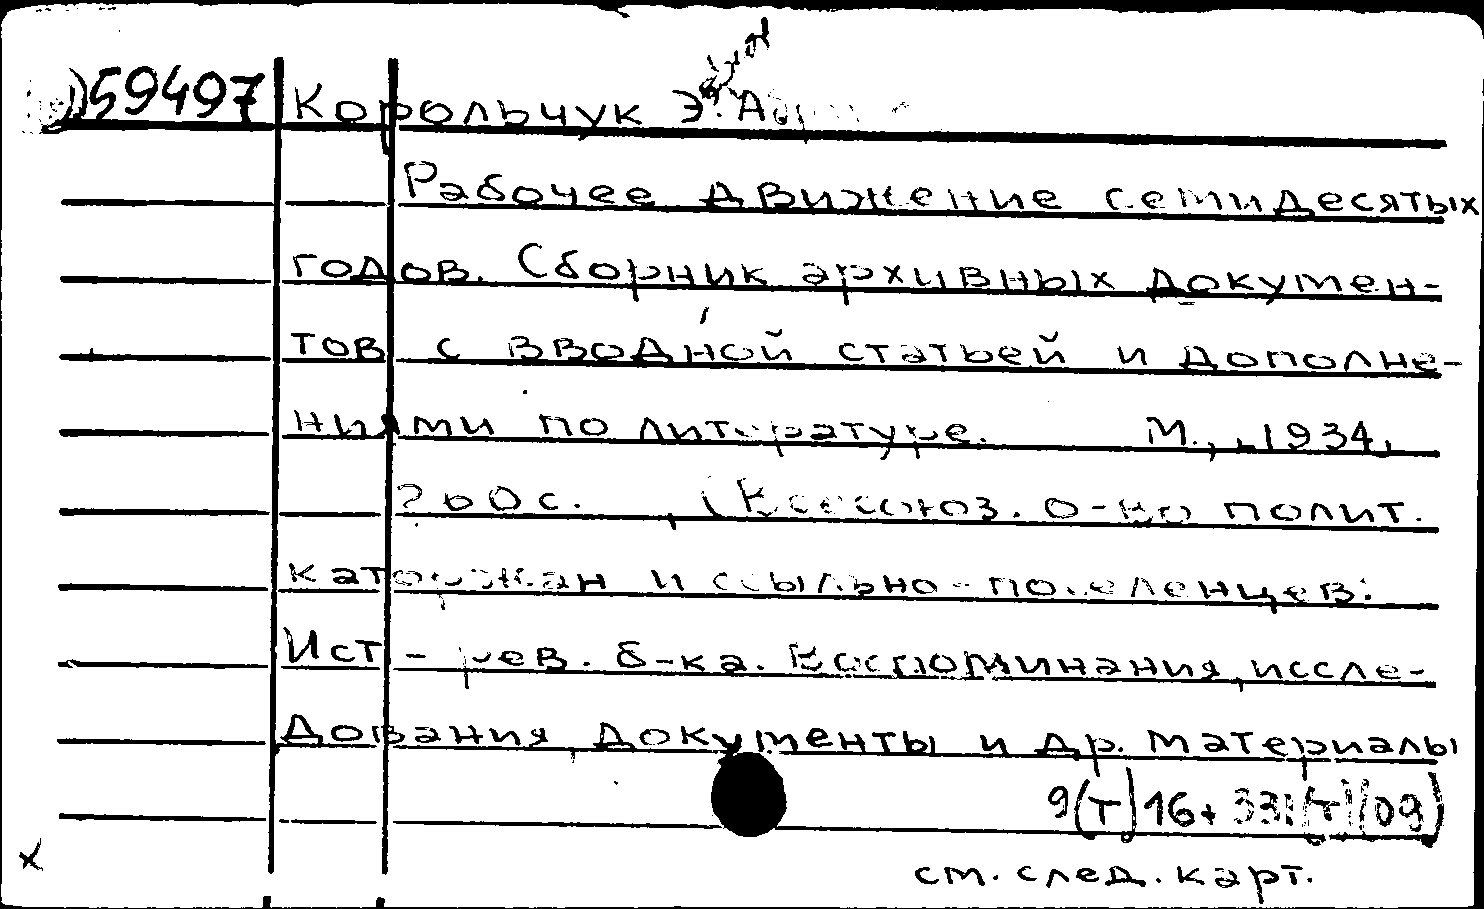 59497 Корольчук Э.
Рабочее движение семидесятых
годов. Сборник архивных докумен-
тов с вводной статьей и дополне-
ниями по литературе. М., 1934,
с. (Всесоюз. о-во полит.
каторжан и ссыльно-поселенцев:
Ист-рев. б-ка. Воспоминания, иссле-
дования, документы и др. материалы
9(Т)16+331(Т)(09)
см. след. карт.